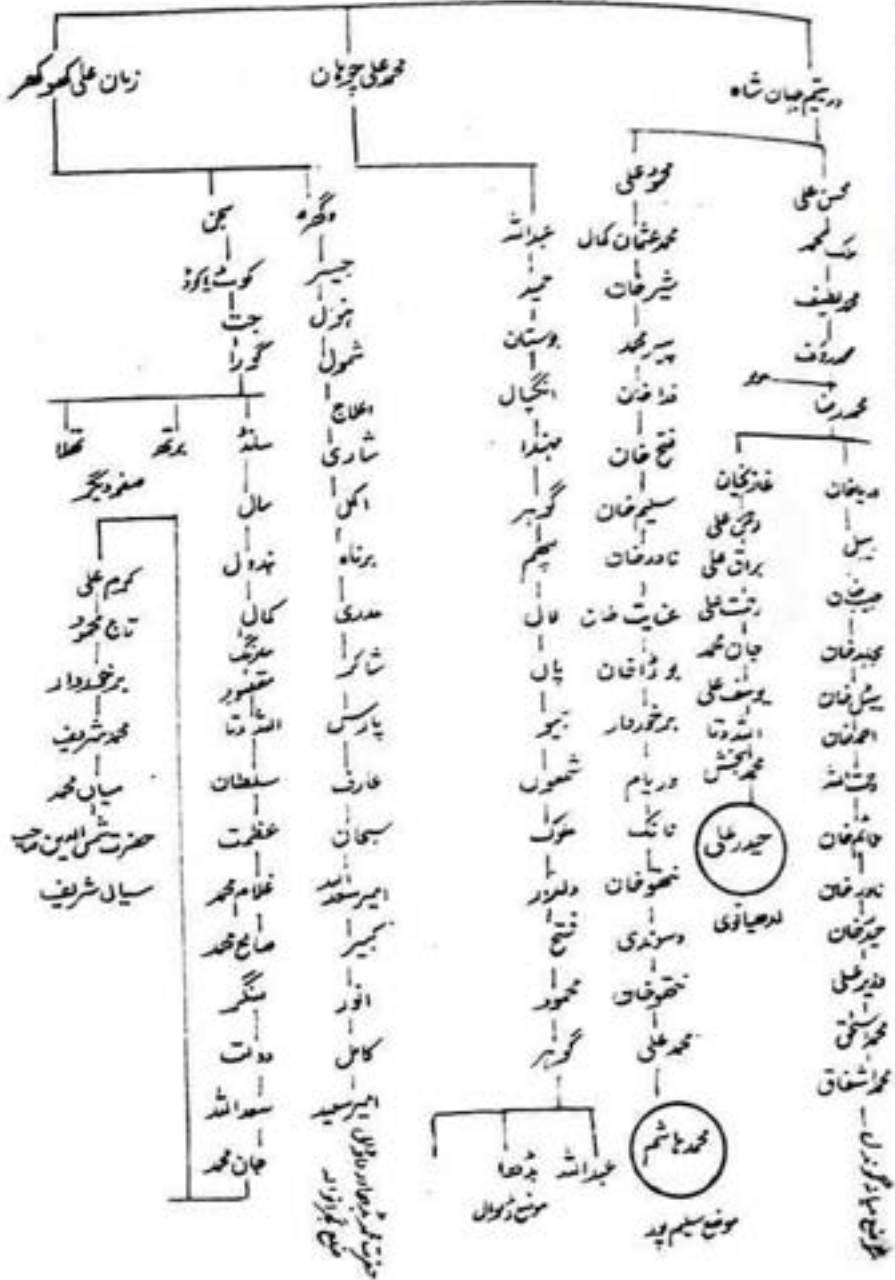 دریتیم جہان شاہ
محمد علی چوہان
زمان علی کھوکھر
محسن علی
ملک محمد
محمد لطیف
محمد رؤف
محمد رضا
دریا خان
بیل
حبیب خان
مجید خان
احمد خان
رحمت اللہ
قائم خان
نادر خان
حیدر خان
وزیر علی
محمد اسحٰق
محمد اشفاق
موضع میانہ گوندل
غازیخان
برات علی
رفعت علی
جان محمد
یوسف علی
اللہ دتا
محمد بخش
حیدر علی
لدھیانوی
محمود علی
محمد عثمان کمال
شیر خان
پیر محمد
فدا خان
فتح خان
سلیم خان
نادر خان
عنایت خان
بوڈا خان
برخوردار
وریام
نانک
نتھو خان
وسوندی
نتھو خان
محمد علی
محمد ہاشم
موضع سلیم پور
عبداللہ
حمید
بوستان
انگیال
جھنڈا
گوہر
لال
پال
شمعون
ملوک
دلاور
فتح
محمود
گوہر
عبداللہ
بڈھا
موضع ڈہوال
وگھرہ
جیسر
شمول
اعلاج
شادی
اکمل
برناہ
مدری
شاکر
پارس
عارف
سبحان
امیر سعد اللہ
کبیر
انور
کامل
امیر سعید
ضلع گجرانوالہ
سجن
کوٹ یا کوڈ
جت
گورا
سلنڈ
برتھ
تھلا
صفحہ دیگر
سال
کمال
ملنگ
مقصود
اللہ دتا
سلطان
عظمت
غلام محمد
صالح محمد
سنگر
دولت
سعد اللہ
جان محمد
کرم علی
تاج محمود
برخوردار
محمد شریف
میاں محمد
حضرت شمس الدین صاحب
سیال شریف